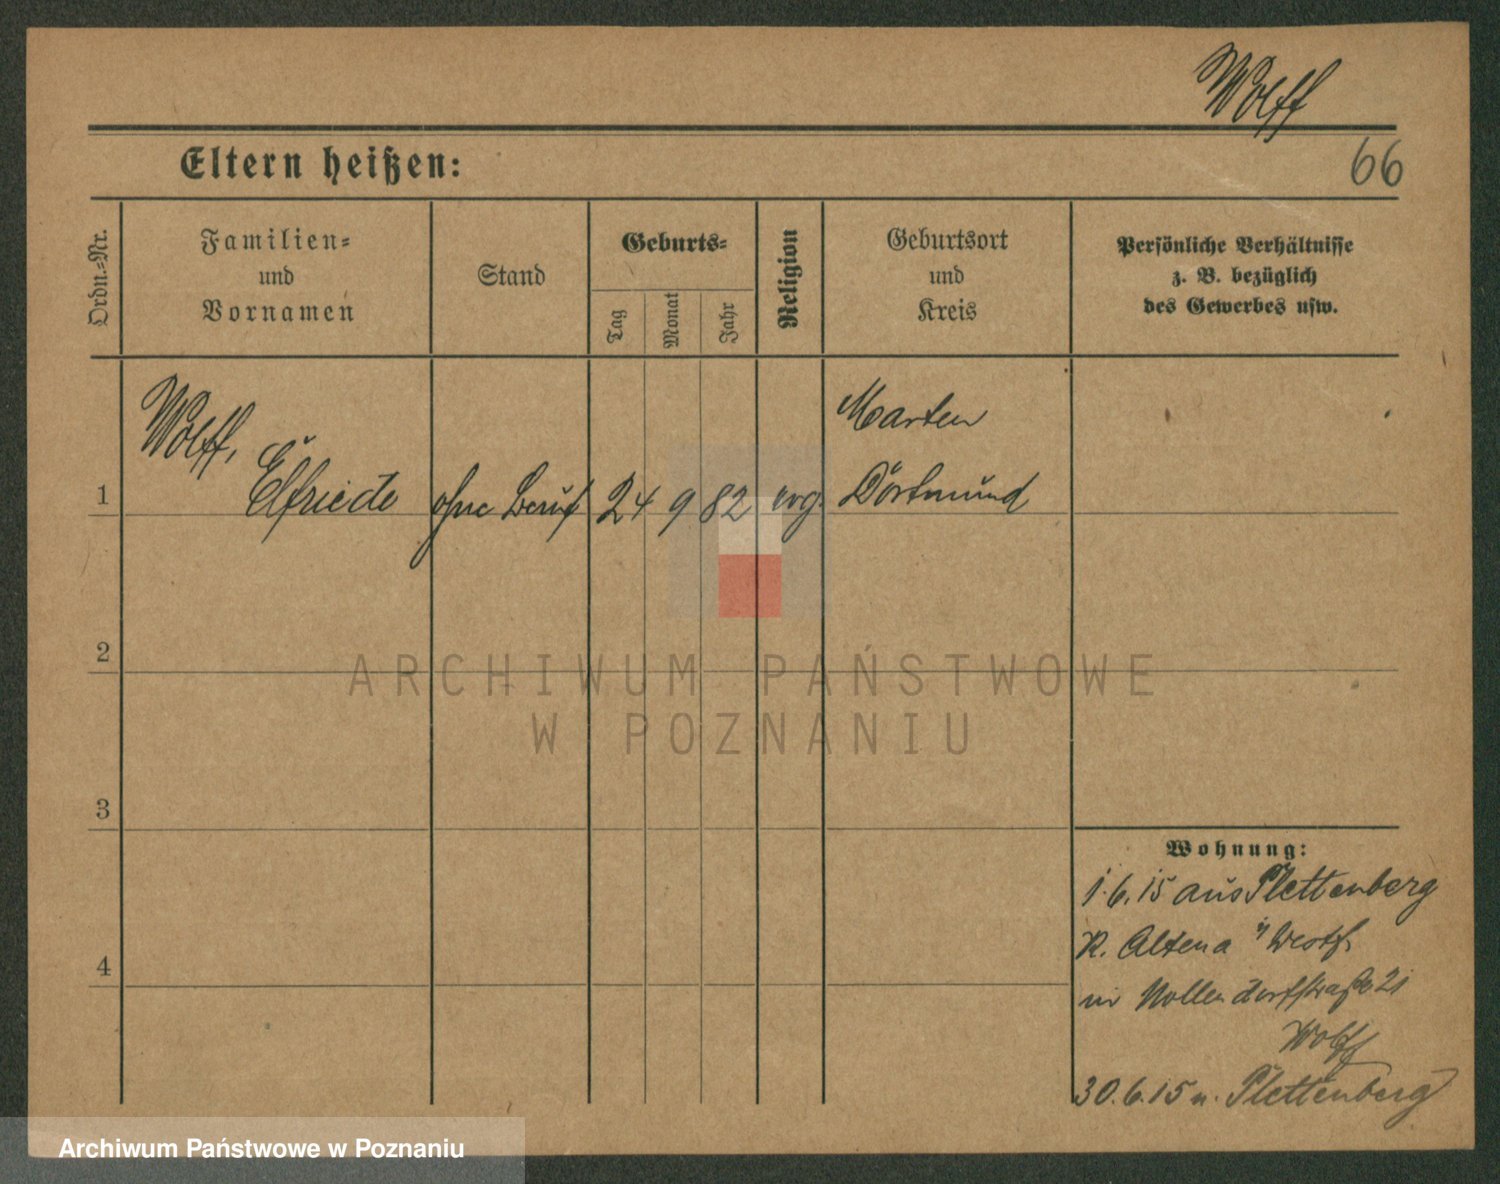 Wolff
Eltern heißen:
66
Ordn.-Nr.
Familien-
und
Vornamen
Stand
Geburts-
Tag
Monat
Jahr
Religion
Geburtsort
und
Kreis
Persönliche Verhältnisse
z. B. bezüglich
des Gewerbes usw.
Wolff,
Marten
1 Elfriede ohne Beruf 24 9 82 evg. Dortmund
2
ARCHIWUM PAŃSTWOWE
W POZNANIU
3
Wohnung:
1.6.15 aus Plettenberg
K. Altena i/ Westf.
4
Nollendorfstraße 21
Wolff
30.6.15 n. Plettenberg
Archiwum Państwowe w Poznaniu